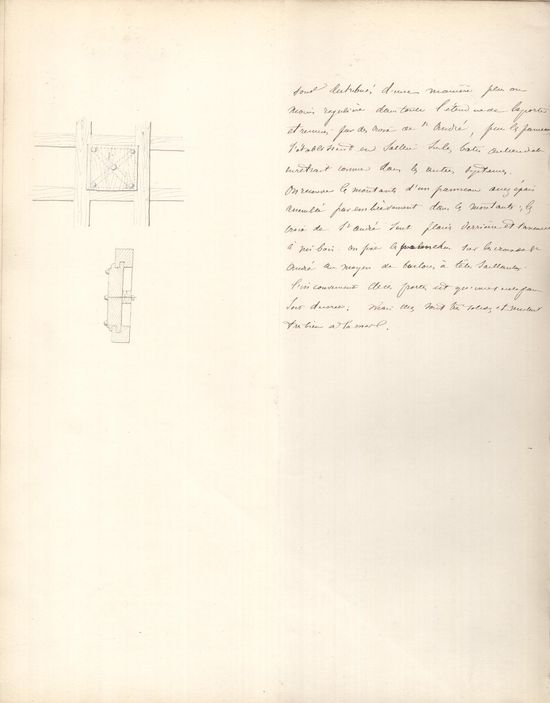 sont distribués d'une manière plus ou
moins régulière dans toute l'étendue de la porte
et réunis par des croix de St André, puis les panneaux
s'établissent en saillie sur les bâtis au lieu d'être
en retrait comme dans les autres systèmes.
On recouvre les montants d'un panneau assez épais
assemblé par embrèvement dans les montants, les
croix de St André sont placés derrière et
à mi bois. on fixe les sur les croix de St
André au moyen de boulons à têtes saillantes.
L'inconvenient de ce porte est qu'
sont . mais elles sont très solides et
très bien